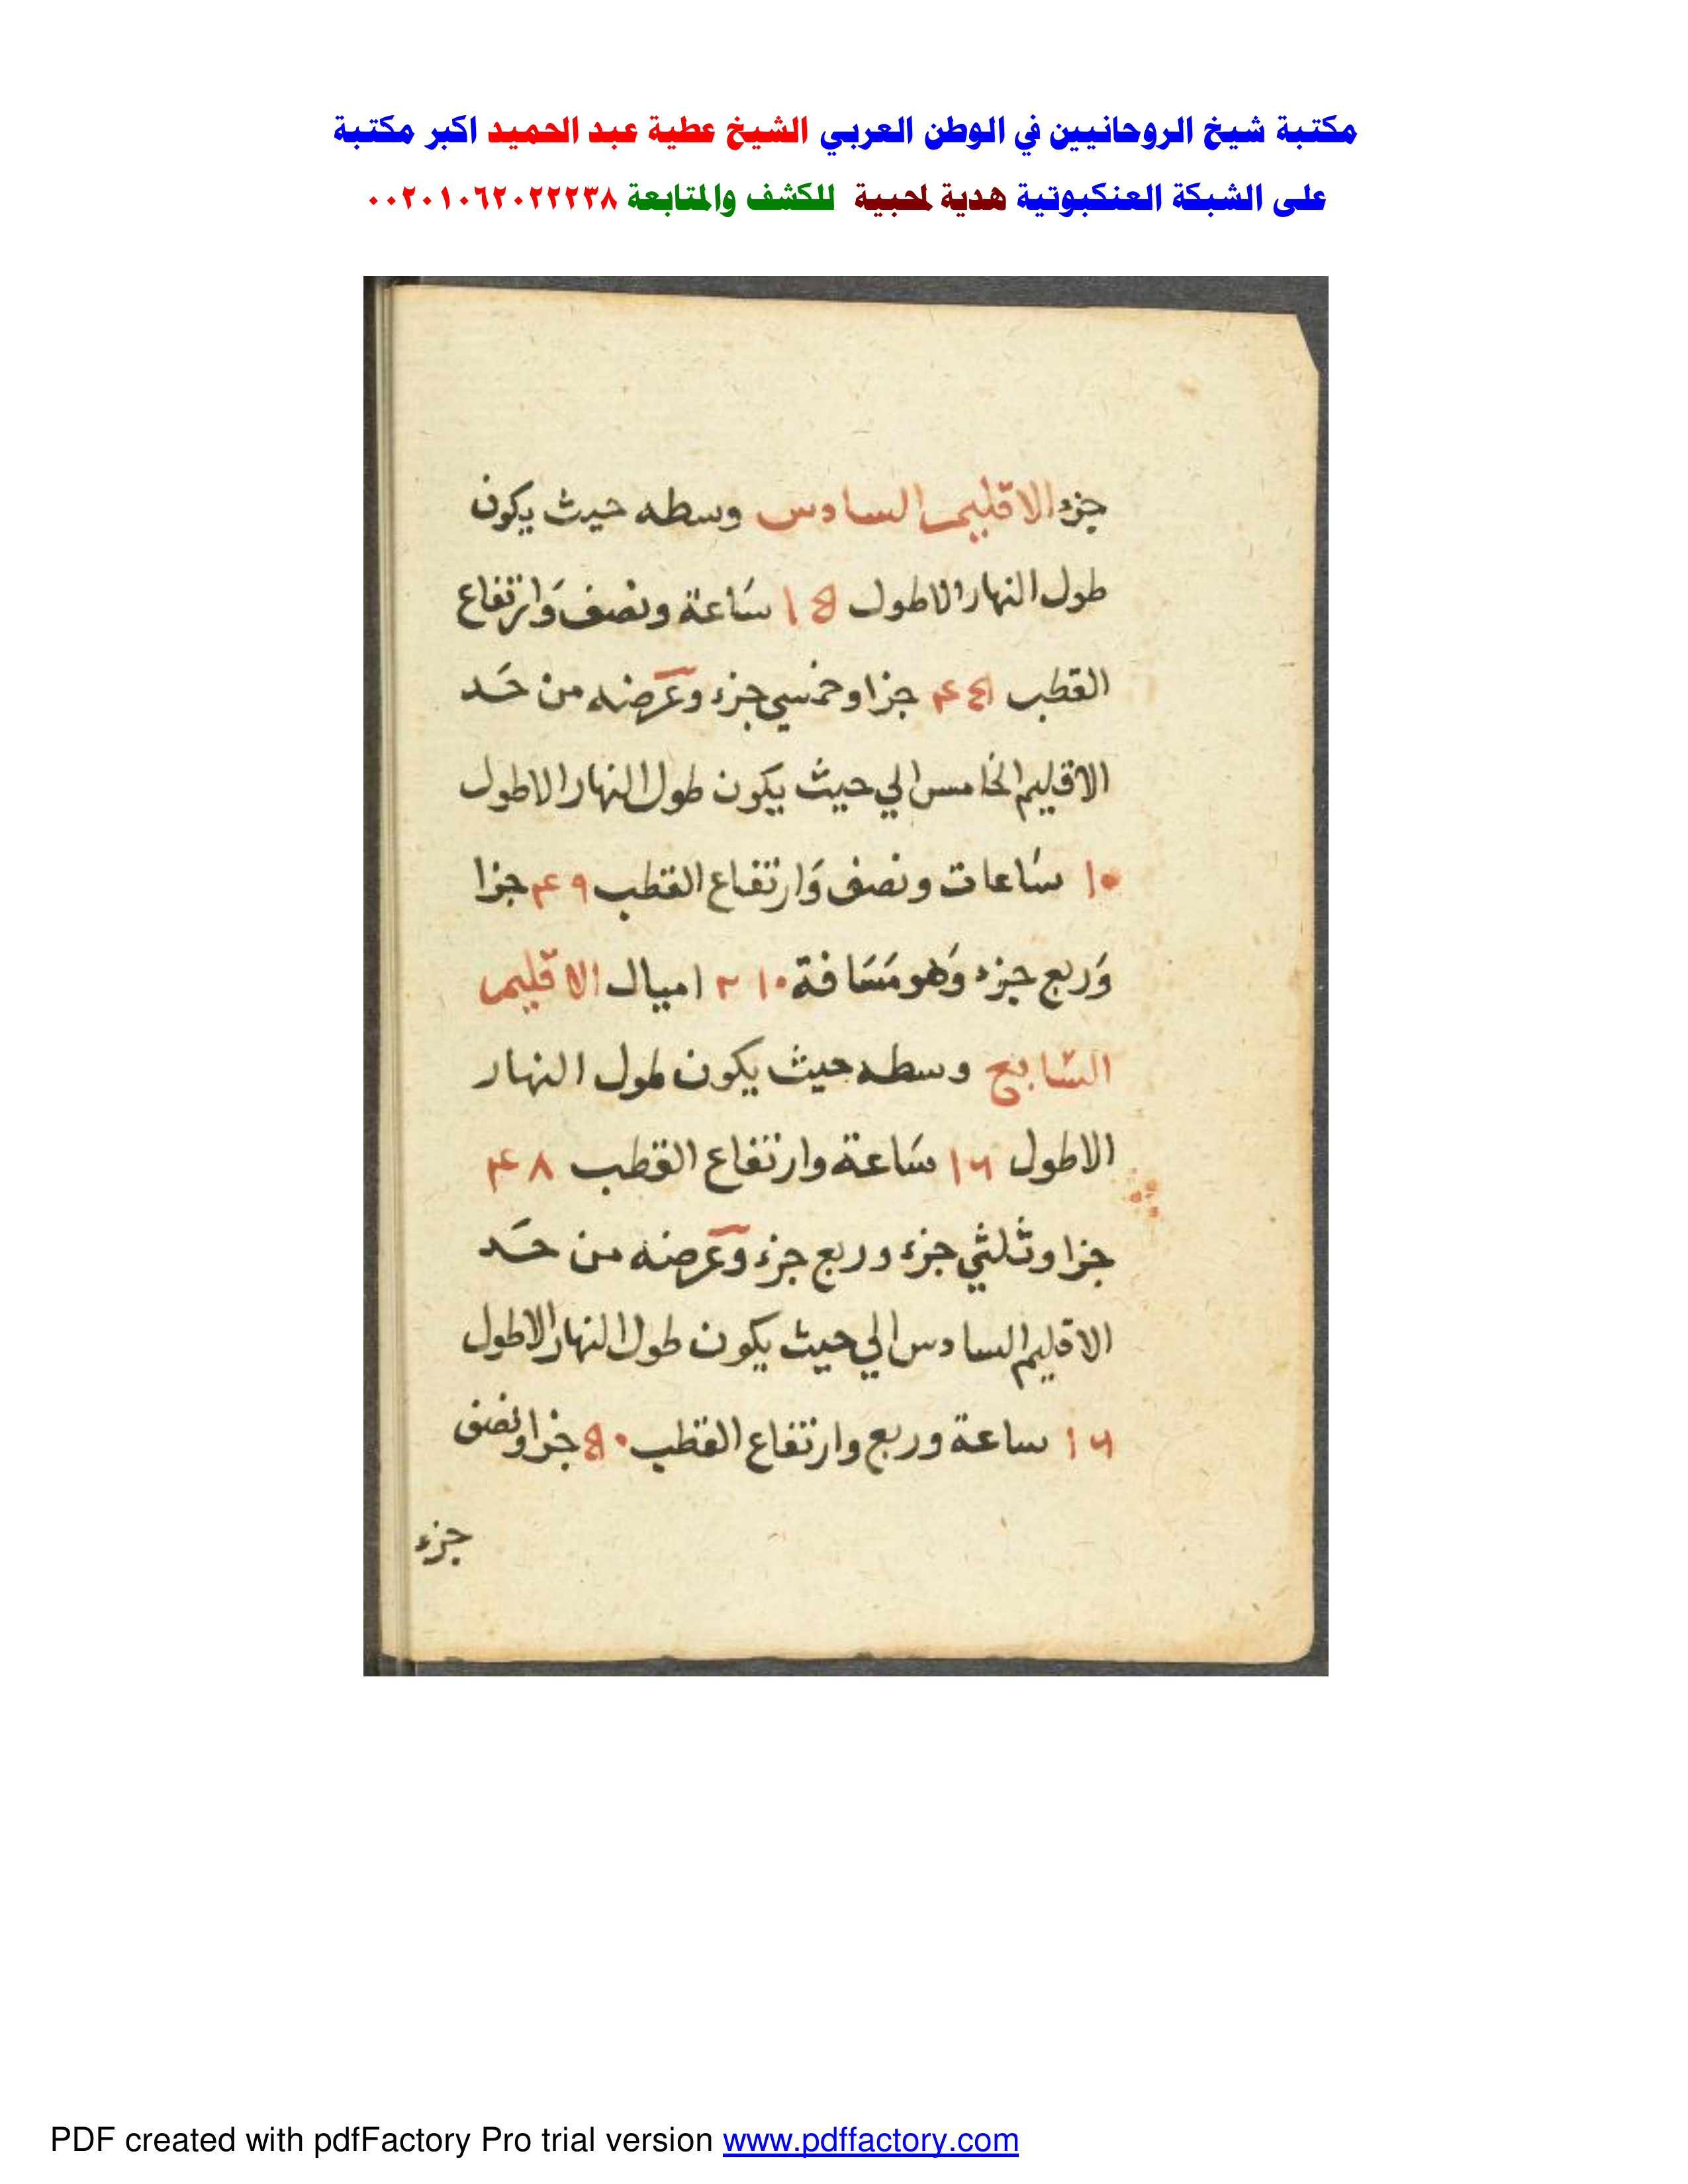 مكتبة شيخ الروحانيين في الوطن العربي الشيخ عطية عبد الحميد اكبر مكتبة
على الشبكة العنكبوتية هدية لمحبية للكشف والمتابعة ٠٠٢٠١٠٦٢٠٢٢٢٣٨
جزء الاقليم السادس وسطه حيث يكون
طول النهار الاطول ١٥ سَاعة ونصف وَارتفاع
القطب ٤٥ جزا وخمسي جزء وعَرضه من حَد
الاقليم الخامس الي حيث يكون طول النهار الاطول
١٥ سَاعات ونصف وَارتفاع القطب ٤٩ جزا
وَربع جزء وَهو مَسَافة ٢١٠ اميال الاقليم
السَّابع وسطه حيث يكون طول النهار
الاطول ١٦ سَاعة وارتفاع القطب ٤٨
جزا وثلثي جزء وربع جزء وعَرضه من حَد
الاقليم السادس الي حيث يكون طول النهار الاطول
١٦ ساعة وربع وارتفاع القطب ٥٠ جزا ونصف
جزء
PDF created with pdfFactory Pro trial version www.pdffactory.com